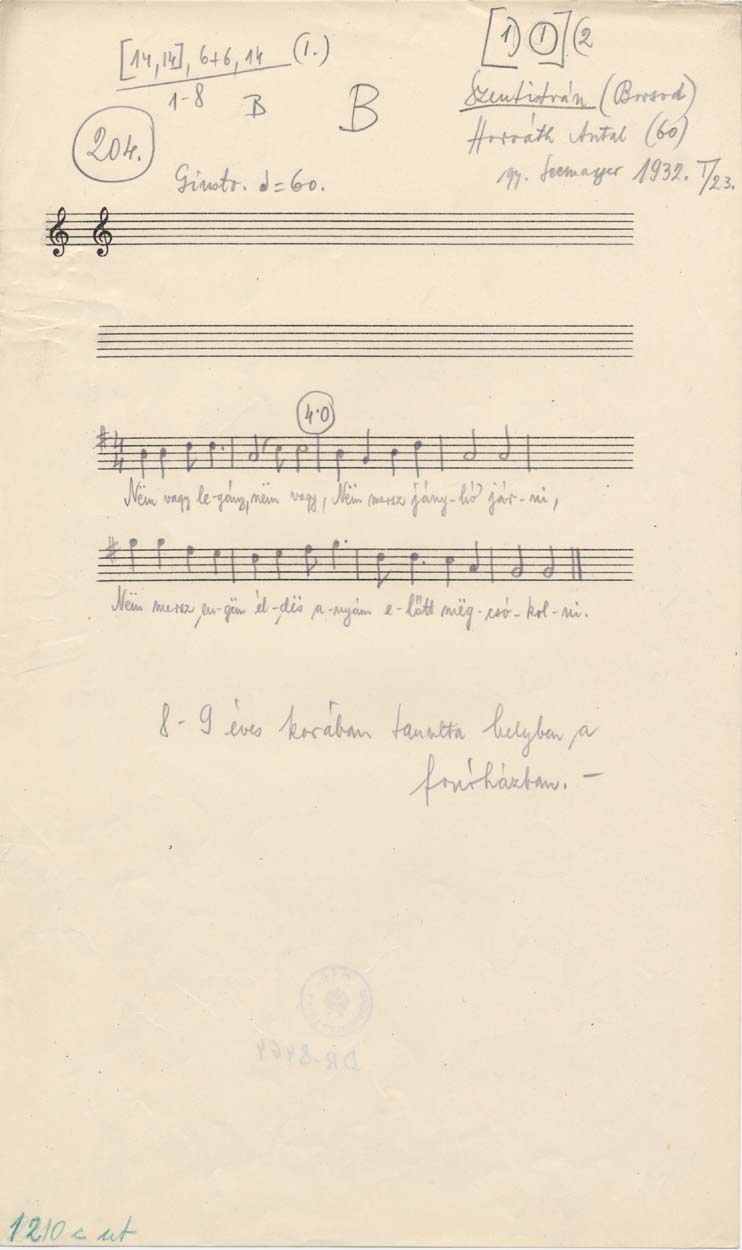 [14,14], 6+6, 14 (I.)
1-8 B B
[1) I] (2
Szentistván (Borsod)
Horváth Antal (60)
gy. Seemayer 1932. I/23.
204.
Giusto. = 60.
4·0
Nëm vagy le-gény, nëm vagy, Nëm mersz jány-hó jár-ni,
Nëm mersz en-gëm él-dës a-nyám e-lőtt mëg-csó-kol-ni.
8-9 éves korában tanulta helyben, a
fonóházban. -
1210 c ut